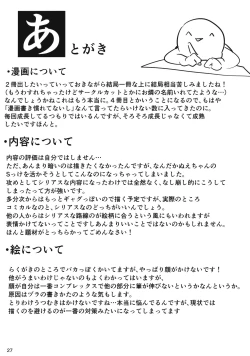 あとがき
・漫画について
2冊出したいっていっておきながら結局一冊な上に結局相当苦しみましたね！
(もうわすれちゃったけどサークルカットとかにお鍋の名前いれてたような…)
なんでしょうかねこれはもう本当に。4冊目とかいうことになるので、もはや
「漫画書き慣れてないし」なんて言ってたらいけない数に入ってきたのに。
毎回成長してるつもりではいるんですが、そろそろ成長じゃなくて成熟
したいですほんと。
・内容について
内容の評価は自分ではしません…
ただ、あんまり暗いのは描きたくなかったんですが、なんだかぬえちゃんの
Sっけを活そうとしてこんなのになっちゃってしまいました。
攻めとしてシリアスな内容になったわけでは全然なく、なし崩し的にこうして
しまったって方が強いです。
多分次からはもっとギャグっぽいので描く予定ですが、実際のところ
コミカルなのと、シリアスなのどっちがうけるんでしょう…もう。
他の人からはシリアスな路線のが絵柄に合うという風にもいわれますが
要素的にってことですしあんまりいいことではないのかもしれません。
ほんと題材がとっちらかってごめんなさい！
・絵について
らくがきのところでバカっぽくかいてますが、やっぱり顔がかけないです！
他がうまいわけじゃないのもよくわかってはいますが、
顔が自分は一番コンプレックスで他の部分に筆が伸びないというかなんというか。
原因はプラの書きかたのような気もします。
とりわけうつむきはかけないですね…本当に悩んでるんですが、現状では
描くのを避けるのが一番の対策みたいになってしまってます。
27